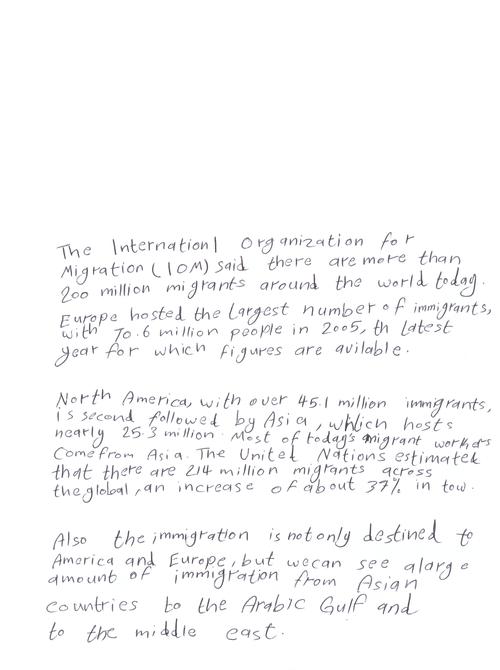 The Internationl Organization for
Migration (IOM) said there are more than
200 million migrants around the world today.
Europe hosted the Largest number of immigrants,
with 70.6 million people in 2005, th Latest
year for which figures are avilable.
North America, with over 45.1 million immigrants,
is second followed by Asia, which hosts
nearly 25.3 million. Most of today's migrant workers
Come from Asia. The United Nations estimated
that there are 214 million migrants across
the global, an increase of about 37% in tow.
Also the immigration is not only destined to
America and Europe, but we can see a large
amount of immigration from Asian
countries to the Arabic Gulf and
to the middle east.